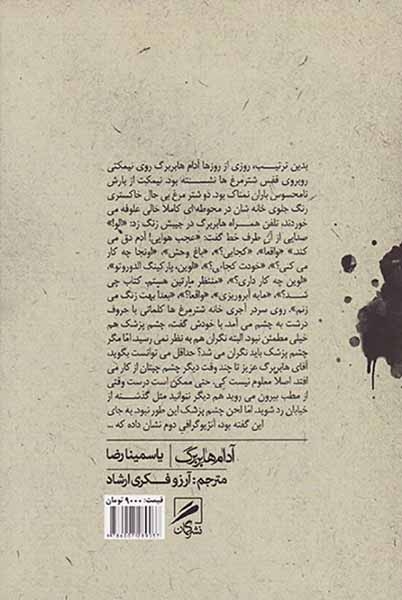 بدین ترتیب، روزی از روزها آدام هابربرگ روی نیمکتی
روبروی قفس شترمرغ ها نشسته بود. نیمکت از بارش
نامحسوس باران نمناک بود. دو شتر مرغ بی حال خاکستری
رنگ جلوی خانه شان در محوطه‌ای کاملا خالی علوفه می
خوردند، تلفن همراه هابربرگ در جیبش زنگ زد: «الو!»
صدایی از آن طرف خط گفت: «عجب هوایی! آدم دق می
کند.» «واقعا»، «کجایی؟»، «باغ وحش»، «اونجا چه کار
می کنی؟»، «خودت کجایی؟»، «لوین، پارکینگ الدورونو»،
«لوین چه کار داری؟»، «منتظر مارتین هستم. کتاب چی
شد؟»، «مایه آبروریزی»، «واقعا؟»، «بعداً بهت زنگ می
زنم». روی سردر آجری خانه شترمرغ ها کلماتی با حروف
درشت به چشم می آمد. با خودش گفت، چشم پزشک هم
خیلی مطمئن نبود. البته نگران هم به نظر نمی رسید. اما مگر
چشم پزشک باید نگران می شد؟ حداقل می توانست بگوید،
آقای هابربرگ عزیز تا چند وقت دیگر چشم چپتان از کار می
افتد. اصلا معلوم نیست کی. حتی ممکن است درست وقتی
از مطب بیرون می روید هم دیگر نتوانید مثل گذشته از
خیابان رد شوید. اما لحن چشم پزشک این طور نبود. به جای
این گفته بود، آنژیوگرافی دوم نشان داده که ...
آدام هابربرگ | یاسمینا رضا
مترجم: آرزو فکری ارشاد
قیمت: ۹۰۰۰ تومان
نشر گمان